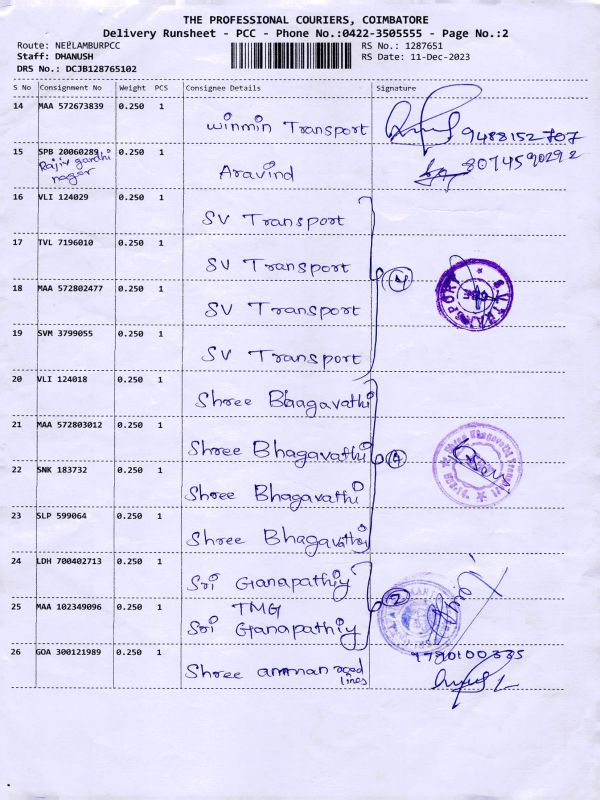 THE PROFESSIONAL COURIERS, COIMBATORE
Delivery Runsheet - PCC - Phone No.:0422-3505555 - Page No.:2
Route: NEELAMBURPCC RS No.: 1287651
Staff: DHANUSH RS Date: 11-Dec-2023
DRS No.: DCJB128765102
S No Consignment No Weight PCS Consignee Details Signature
14 MAA 572673839 0.250 1 Winmin Transport 9488152707
15 SPB 20060289 0.250 1 Aravind 8074590292
Rajiv gandhi
nagar
16 VLI 124029 0.250 1 SV Transport
17 TVL 7196010 0.250 1 SV Transport
4
18 MAA 572802477 0.250 1 SV Transport
S.V.TRANSPORT
CBE
19 SVM 3799055 0.250 1 SV Transport
20 VLI 124018 0.250 1 Shree Bhagavathi
21 MAA 572803012 0.250 1 Shree Bhagavathi
4
Shree Bhagavathi
22 SNK 183732 0.250 1 Shree Bhagavathi
23 SLP 599064 0.250 1 Shree Bhagavathi
24 LDH 700402713 0.250 1 Sri Ganapathiy
TMG
2
25 MAA 102349096 0.250 1 Sri Ganapathiy
26 GOA 300121989 0.250 1 Shree amman road
lines